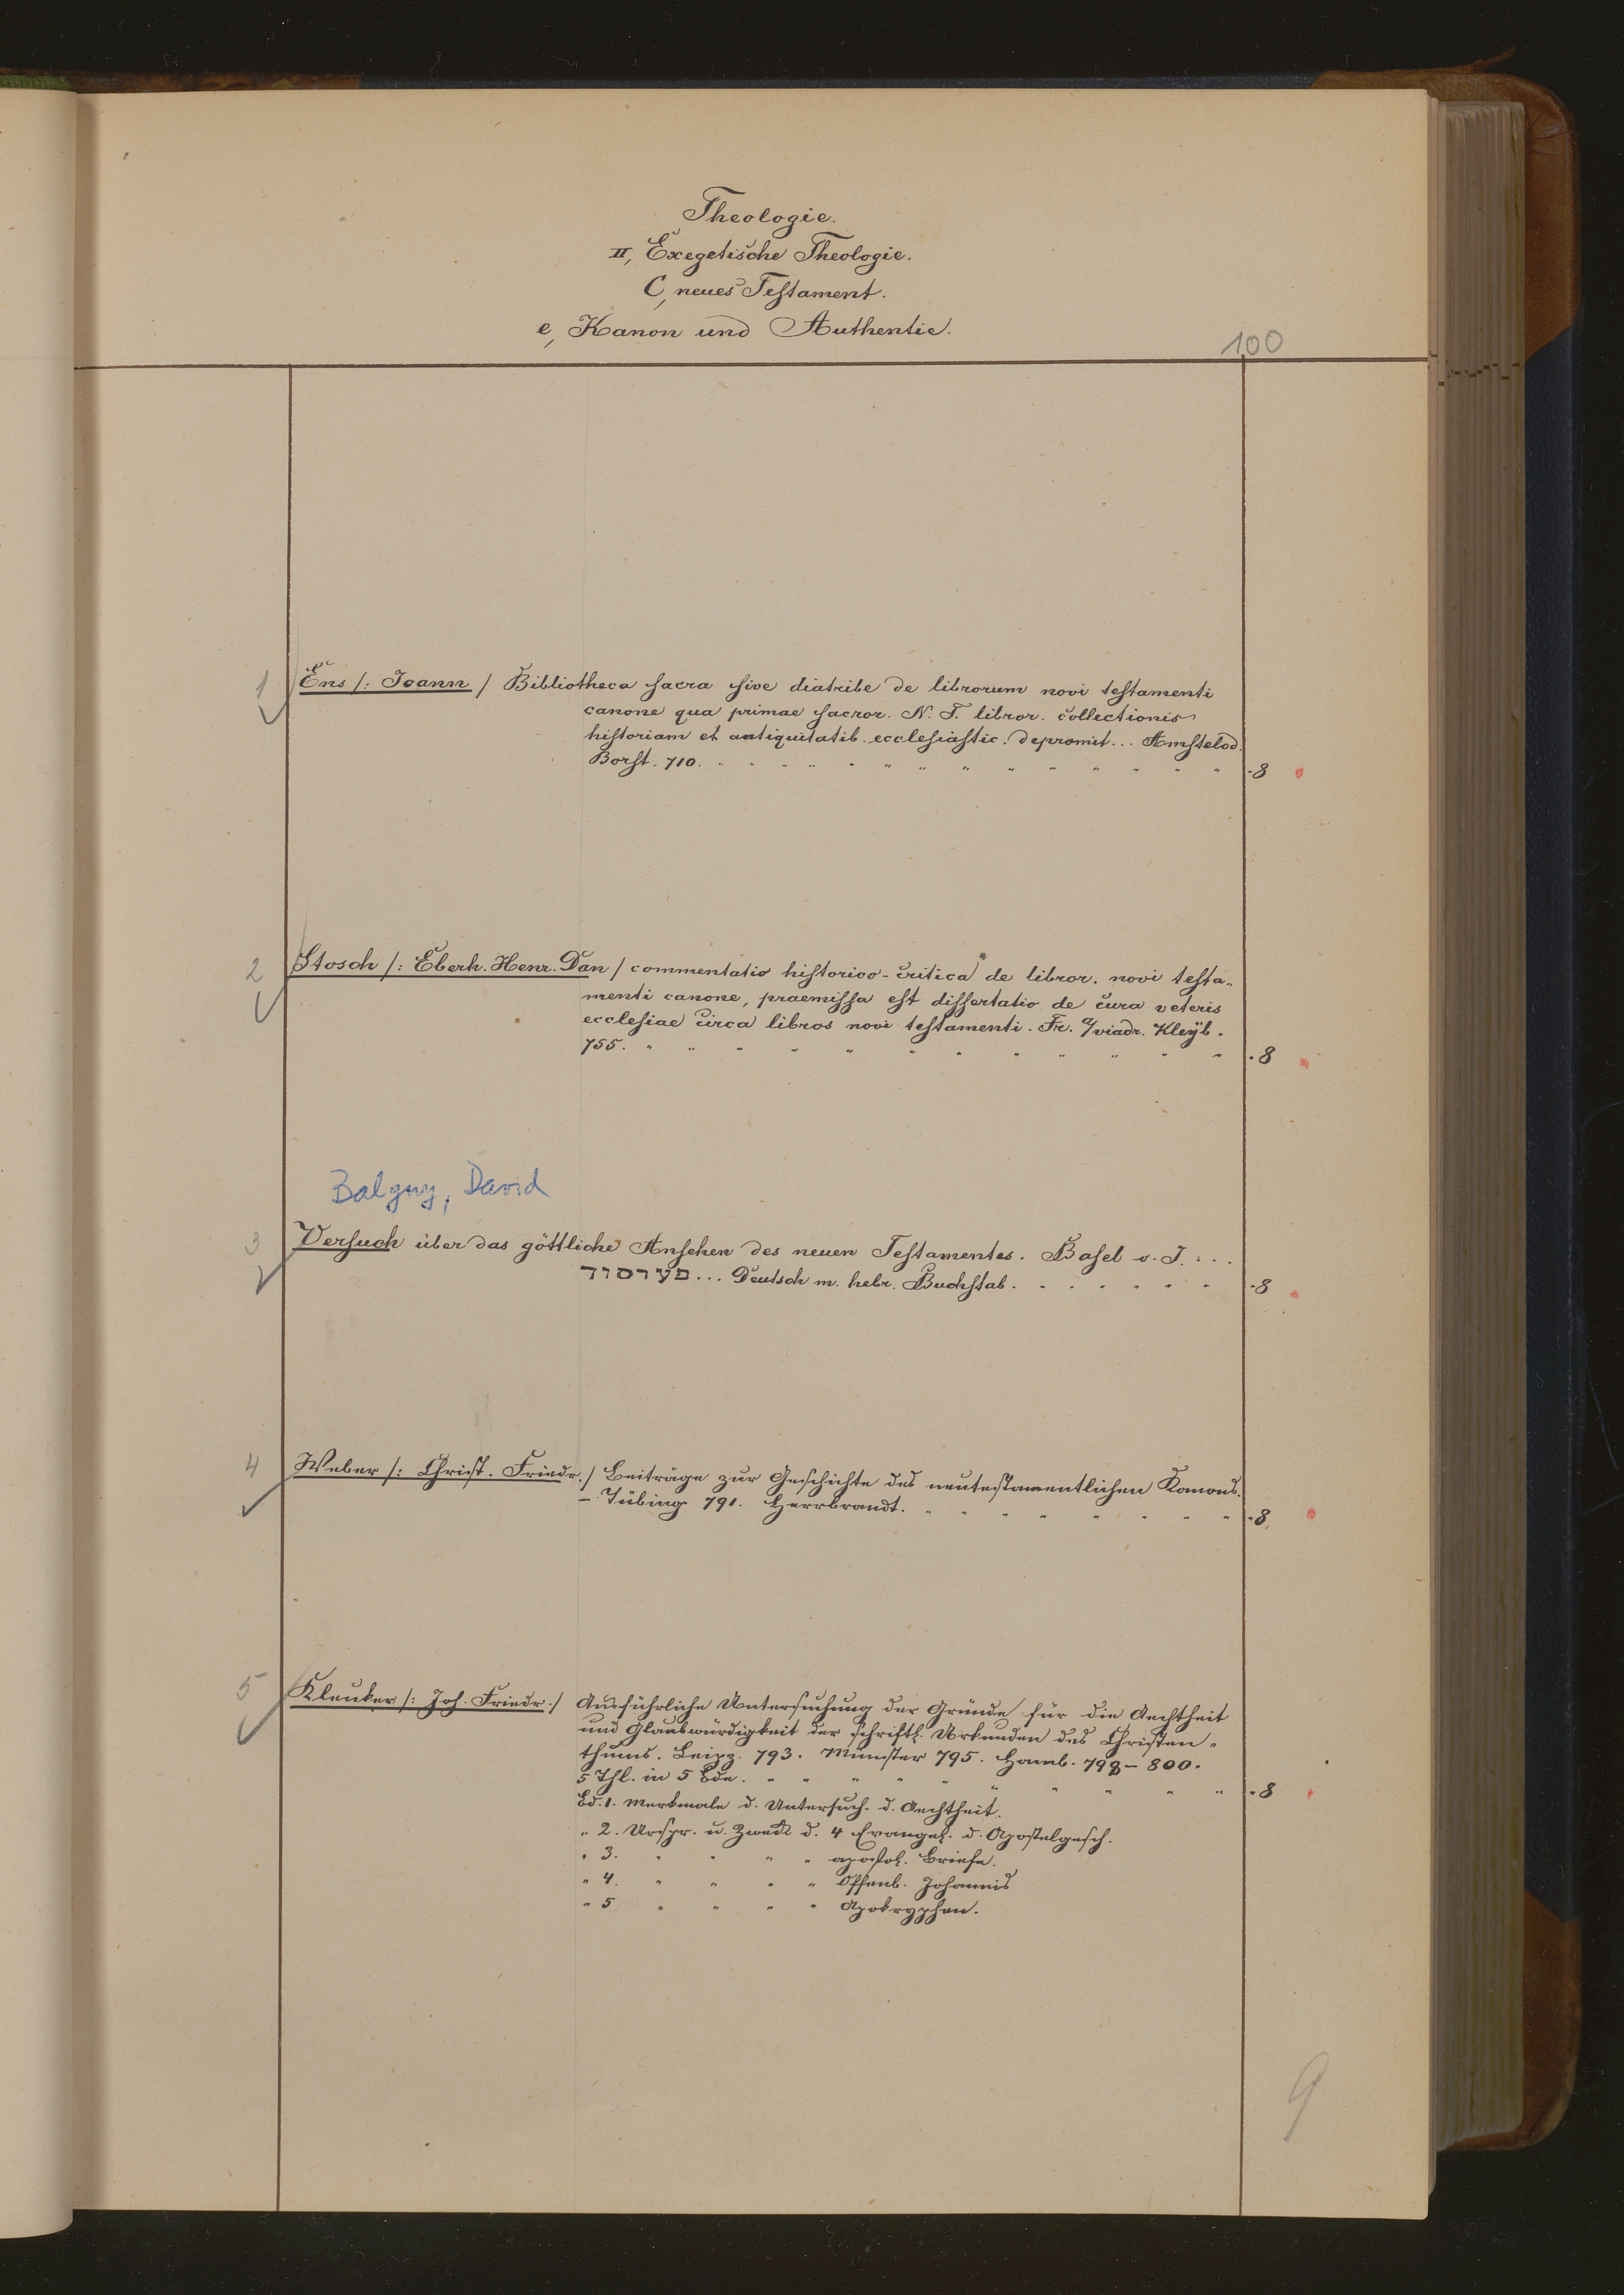 Theologie.
II, Exegetische Theologie.
C, neues Testament.
e, Kanon und Authentie.
100
1 Ens /: Joann / Bibliotheca sacra sive diatribe de librorum novi testamenti
canone qua primae sacror. N. T. libror. collectionis
historiam et antiquitatib. ecclesiastic. depromit... Amstelod.
Borst. 710. - 8
2 Stosch /: Eberh. Henr. Dan / commentatio historico-critica de libror. novi testa-
menti canone, praemissa est dissertatio de cura veteris
ecclesiae circa libros novi testamenti. Fr. a/viadr. Kleyb.
755. " " " " " " " " " " " " - 8
Balguy, David
3 Versuch über das göttliche Ansehen des neuen Testamentes. Basel o. J. ...
... Deutsch m. hebr. Buchstab. . . . . . . - 8
4 Weber /: Christ. Friedr. / Beiträge zur Geschichte des neutestamentlichen Kanons.
- Tübing 791. Heerbrandt. " " " " " " " " - 8.
5 Kleuker /: Joh. Friedr. :/ Ausführliche Untersuchung der Gründe für die Aechtheit
und Glaubwürdigkeit der schriftl. Urkunden des Christen-
thums. Leipz. 793. Münster 795. Hamb. 798-800.
5 Thl. in 5 Bde. " " " " " " " " " " - 8
Bd. 1. Merkmale d. Untersuch. d. Aechtheit.
" 2. Urspr. u. Zweck d. 4 Evangel. d. Apostelgesch.
" 3. " " " " apostol. Briefe.
" 4. " " " " Offenb. Johannis
" 5 " " " " Apokryphen.
9